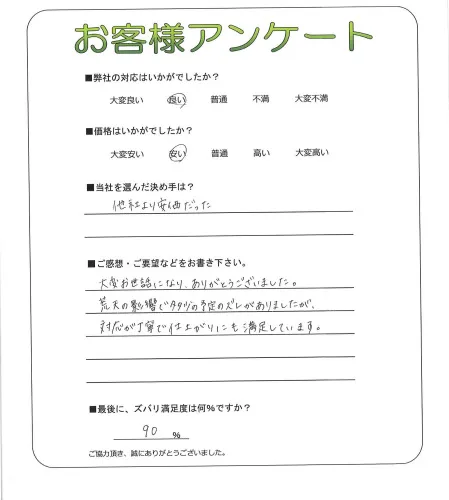 お客様アンケート
■弊社の対応はいかがでしたか？
大変良い 良い 普通 不満 大変不満
■価格はいかがでしたか？
大変安い 安い 普通 高い 大変高い
■当社を選んだ決め手は？
他社より安価だった
■ご感想・ご要望などをお書き下さい。
大変お世話になり、ありがとうございました。
荒天の影響で の予定のズレがありましたが、
対応が丁寧で仕上がりにも満足しています。
■最後に、ズバリ満足度は何%ですか？
90 %
ご協力頂き、誠にありがとうございました。